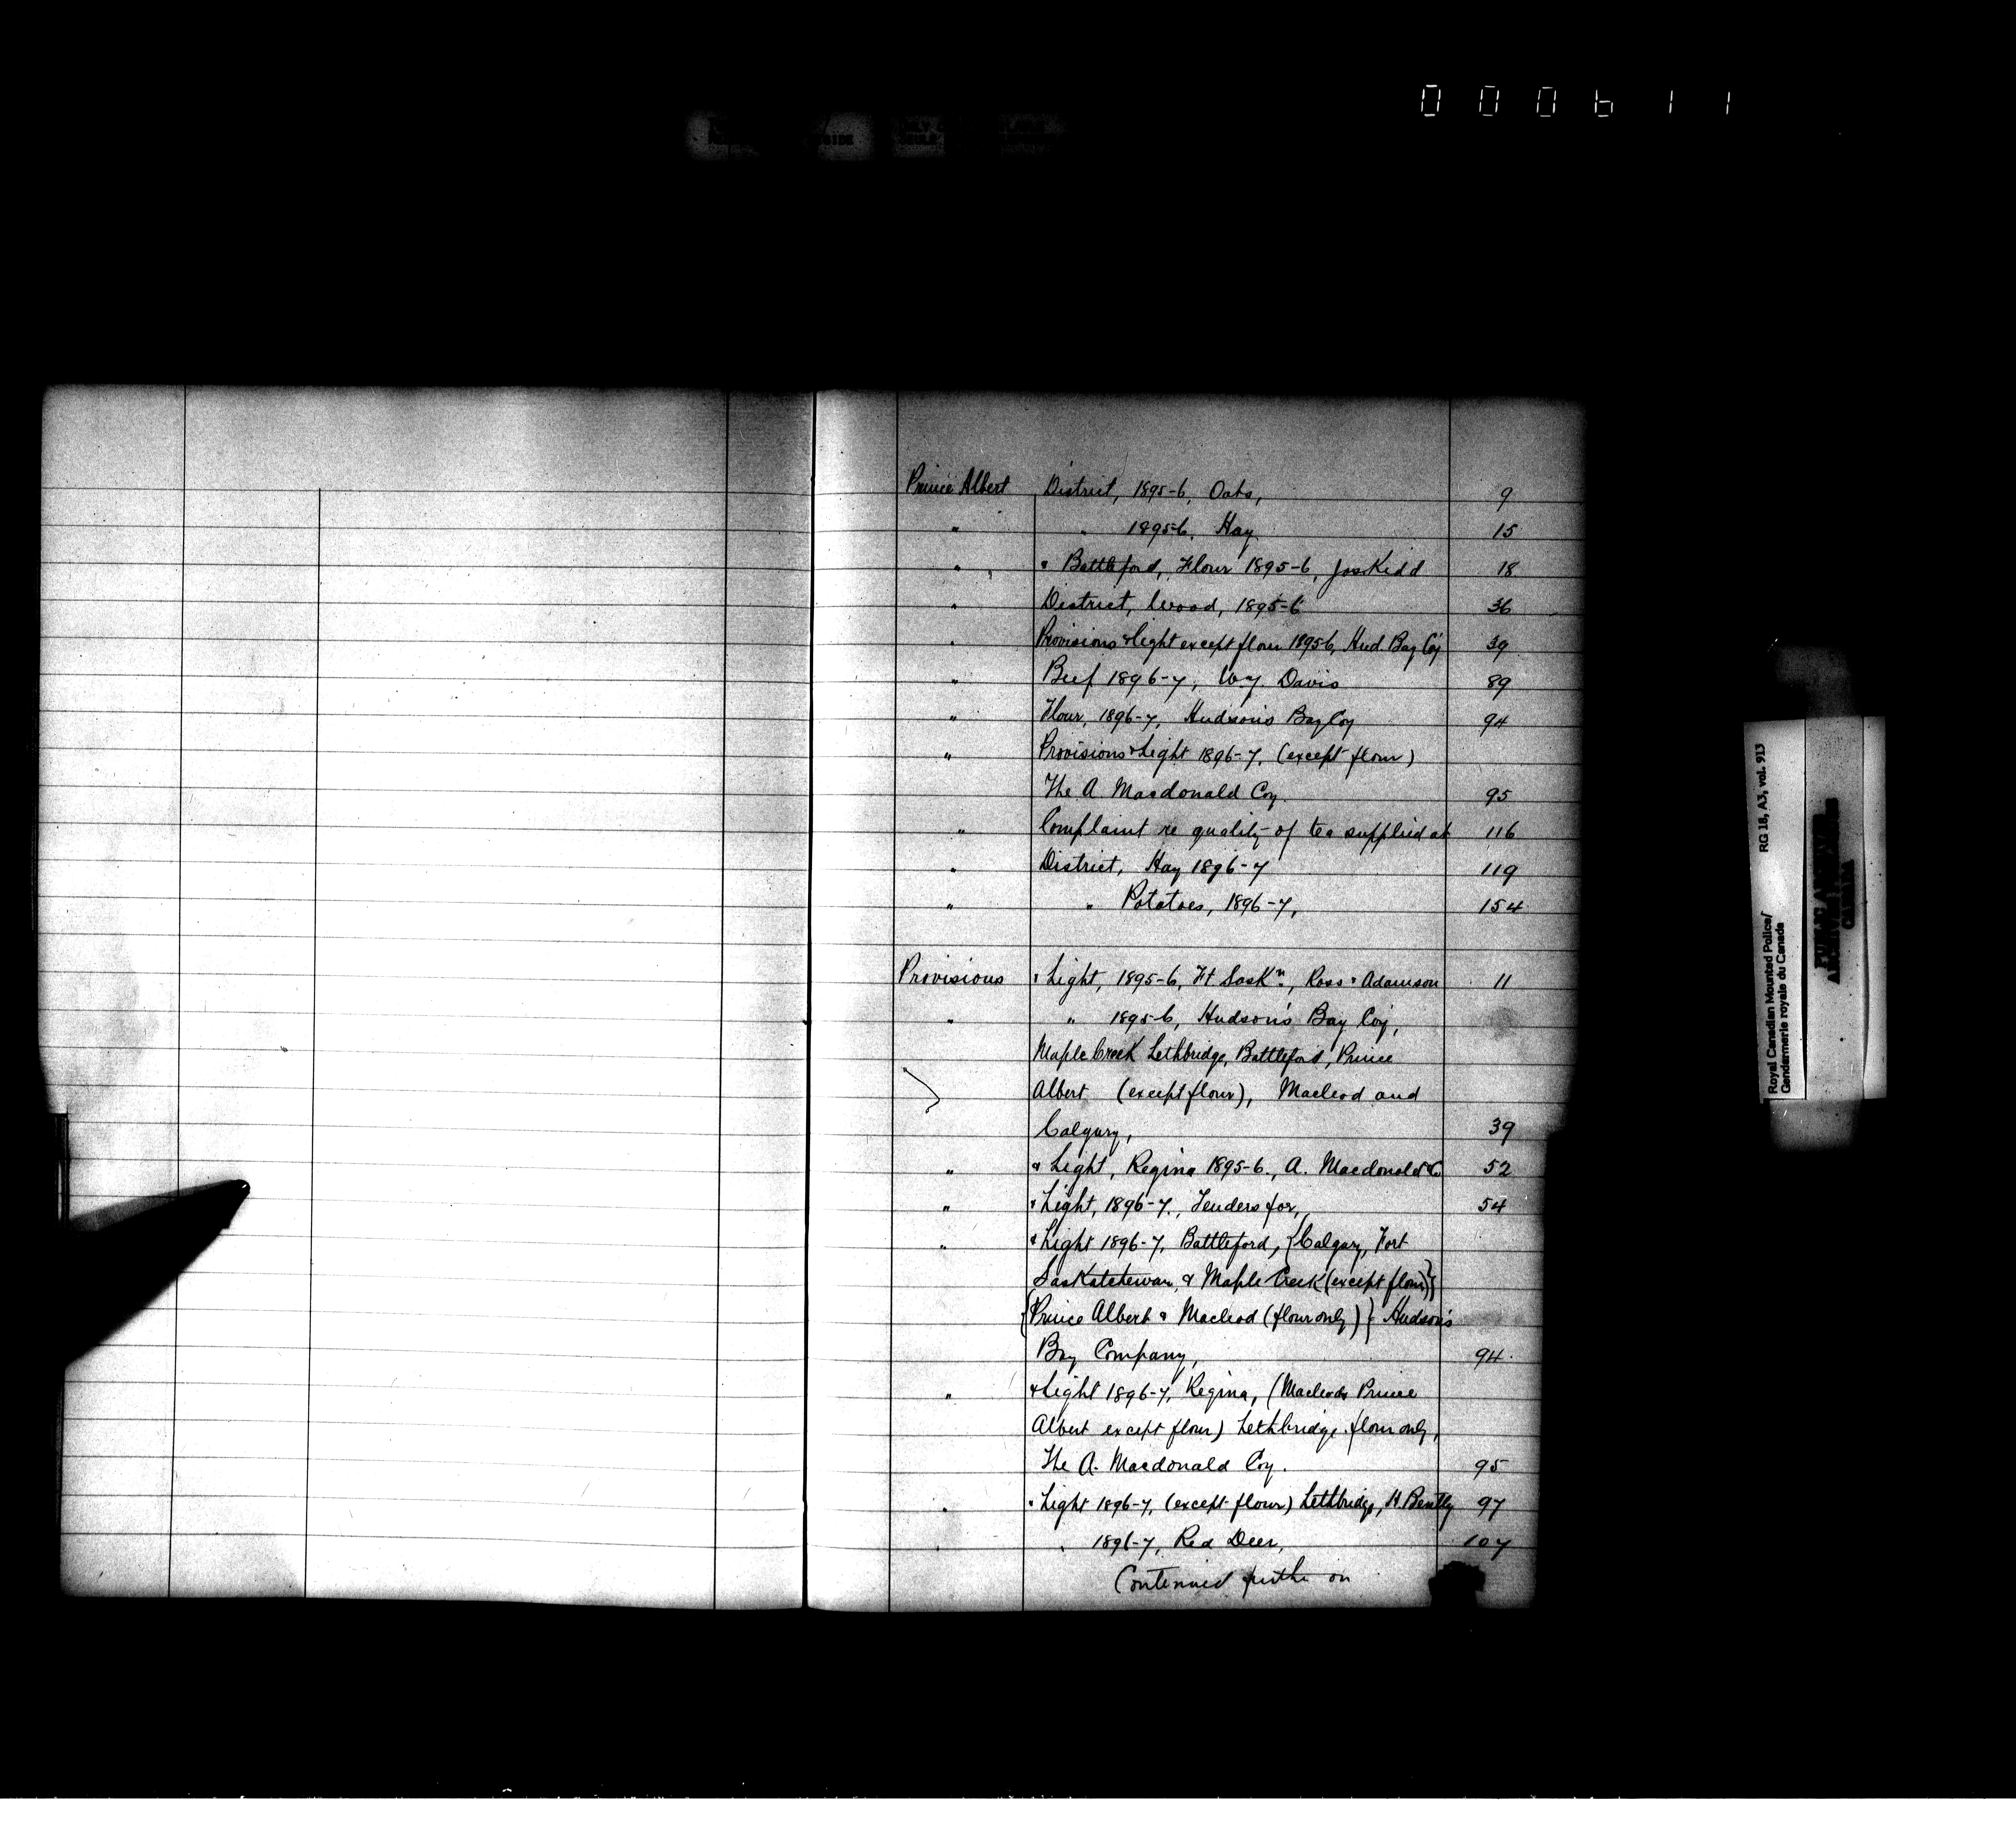 000611
Prince Albert District, 1895-6, Oats, 9
" " 1895-6, Hay 15
" & Battleford, Flour 1895-6, Jas Kidd 18
" District, Wood, 1895-6 36
" Provisions & Light except flour 1895-6, Hud. Bay Coy 39
" Beef 1896-7, Davis 89
" Flour, 1896-7, Hudson's Bay Coy 94
" Provisions & Light 1896-7, (except flour)
The A Macdonald Coy. 95
" Complaint re quality of tea supplied at 116
" District, Hay 1896-7 119
" " Potatoes, 1896-7, 154
Provisions & Light, 1895-6, Ft Saskn., Ross & Adamson 11
" " 1895-6, Hudson's Bay Coy,
Maple Creek Lethbridge, Battleford, Prince
Albert (except flour), Macleod and
Calgary, 39
" & Light, Regina 1895-6., A. Macdonald & Co 52
" & Light, 1896-7., Tenders for, 54
" & Light 1896-7, Battleford, {Calgary, Fort
Saskatchewan, & Maple Creek (except flour)}
{Prince Albert & Macleod (flour only)} Hudson's
Bay Company, 94
" & Light 1896-7, Regina, (Macleod & Prince
Albert except flour) Lethbridge flour only,
The A. Macdonald Coy. 95
" & Light 1896-7, (except flour) Lethbridge, H. Bently 97
" " 1896-7, Red Deer, 107
Continued further on
RG 18, A3, vol. 913
Royal Canadian Mounted Police/
Gendarmerie royale du Canada
PUBLIC ARCHIVES
ARCHIVES PUBLIQUES
CANADA